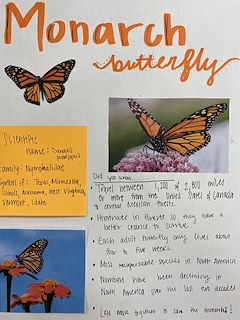 Monarch
butterfly
Scientific
name: Danaus
plexippus
Family: Nymphalidae
Symbol of: Texas, Minnesota,
Illinois, Alabama, West Virginia,
Vermont, Idaho
Did you know...
Travel between 1,200 of 2,800 miles
or more from the United States of Canada
to central Mexican forests.
Hibernate in forests so they have a
better chance to survive.
Each adult butterfly only lives about
four to five weeks.
Most recognizable species in North America
Numbers have been declining in
North America over the last two decades
Let's have together to save the monarchs!